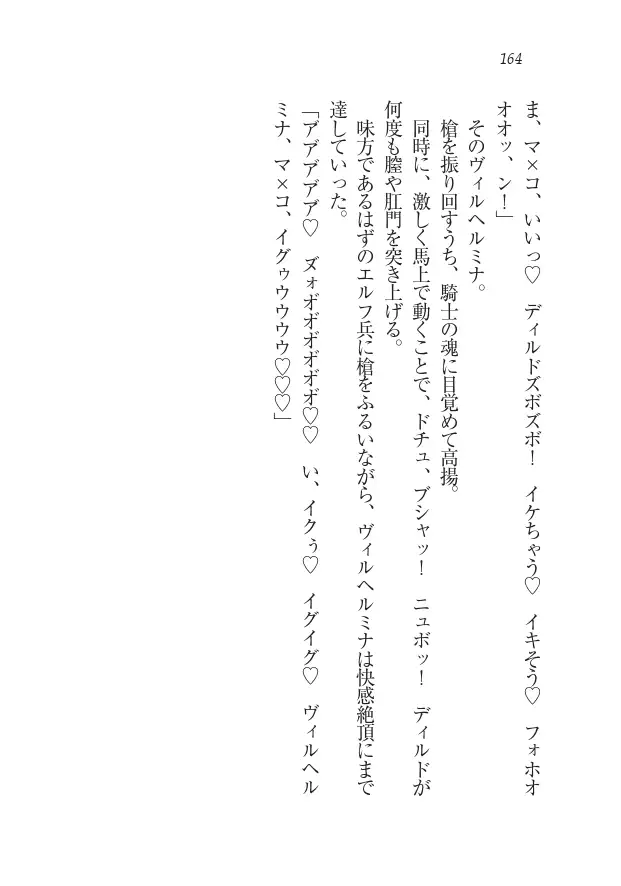 164
ま、マ×コ、いいっ♡　ディルドズボズボ！　イケちゃう♡　イキそう♡　フォホオ
オオッ、ン！」
　そのヴィルヘルミナ。
　槍を振り回すうち、騎士の魂に目覚めて高揚。
　同時に、激しく馬上で動くことで、ドチュ、ブシャッ！　ニュボッ！　ディルドが
何度も膣や肛門を突き上げる。
　味方であるはずのエルフ兵に槍をふるいながら、ヴィルヘルミナは快感絶頂にまで
達していった。
「アアアアア♡　ヌォオオオオオオ♡♡　い、イクぅ♡　イグイグ♡　ヴィルヘル
ミナ、マ×コ、イグゥウウウウ♡♡♡」